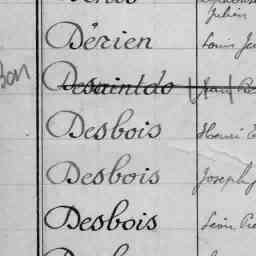 Julien
Dérien Louis
Bon Desaintdo Jean
Desbois Henri
Desbois Joseph
Desbois Léon